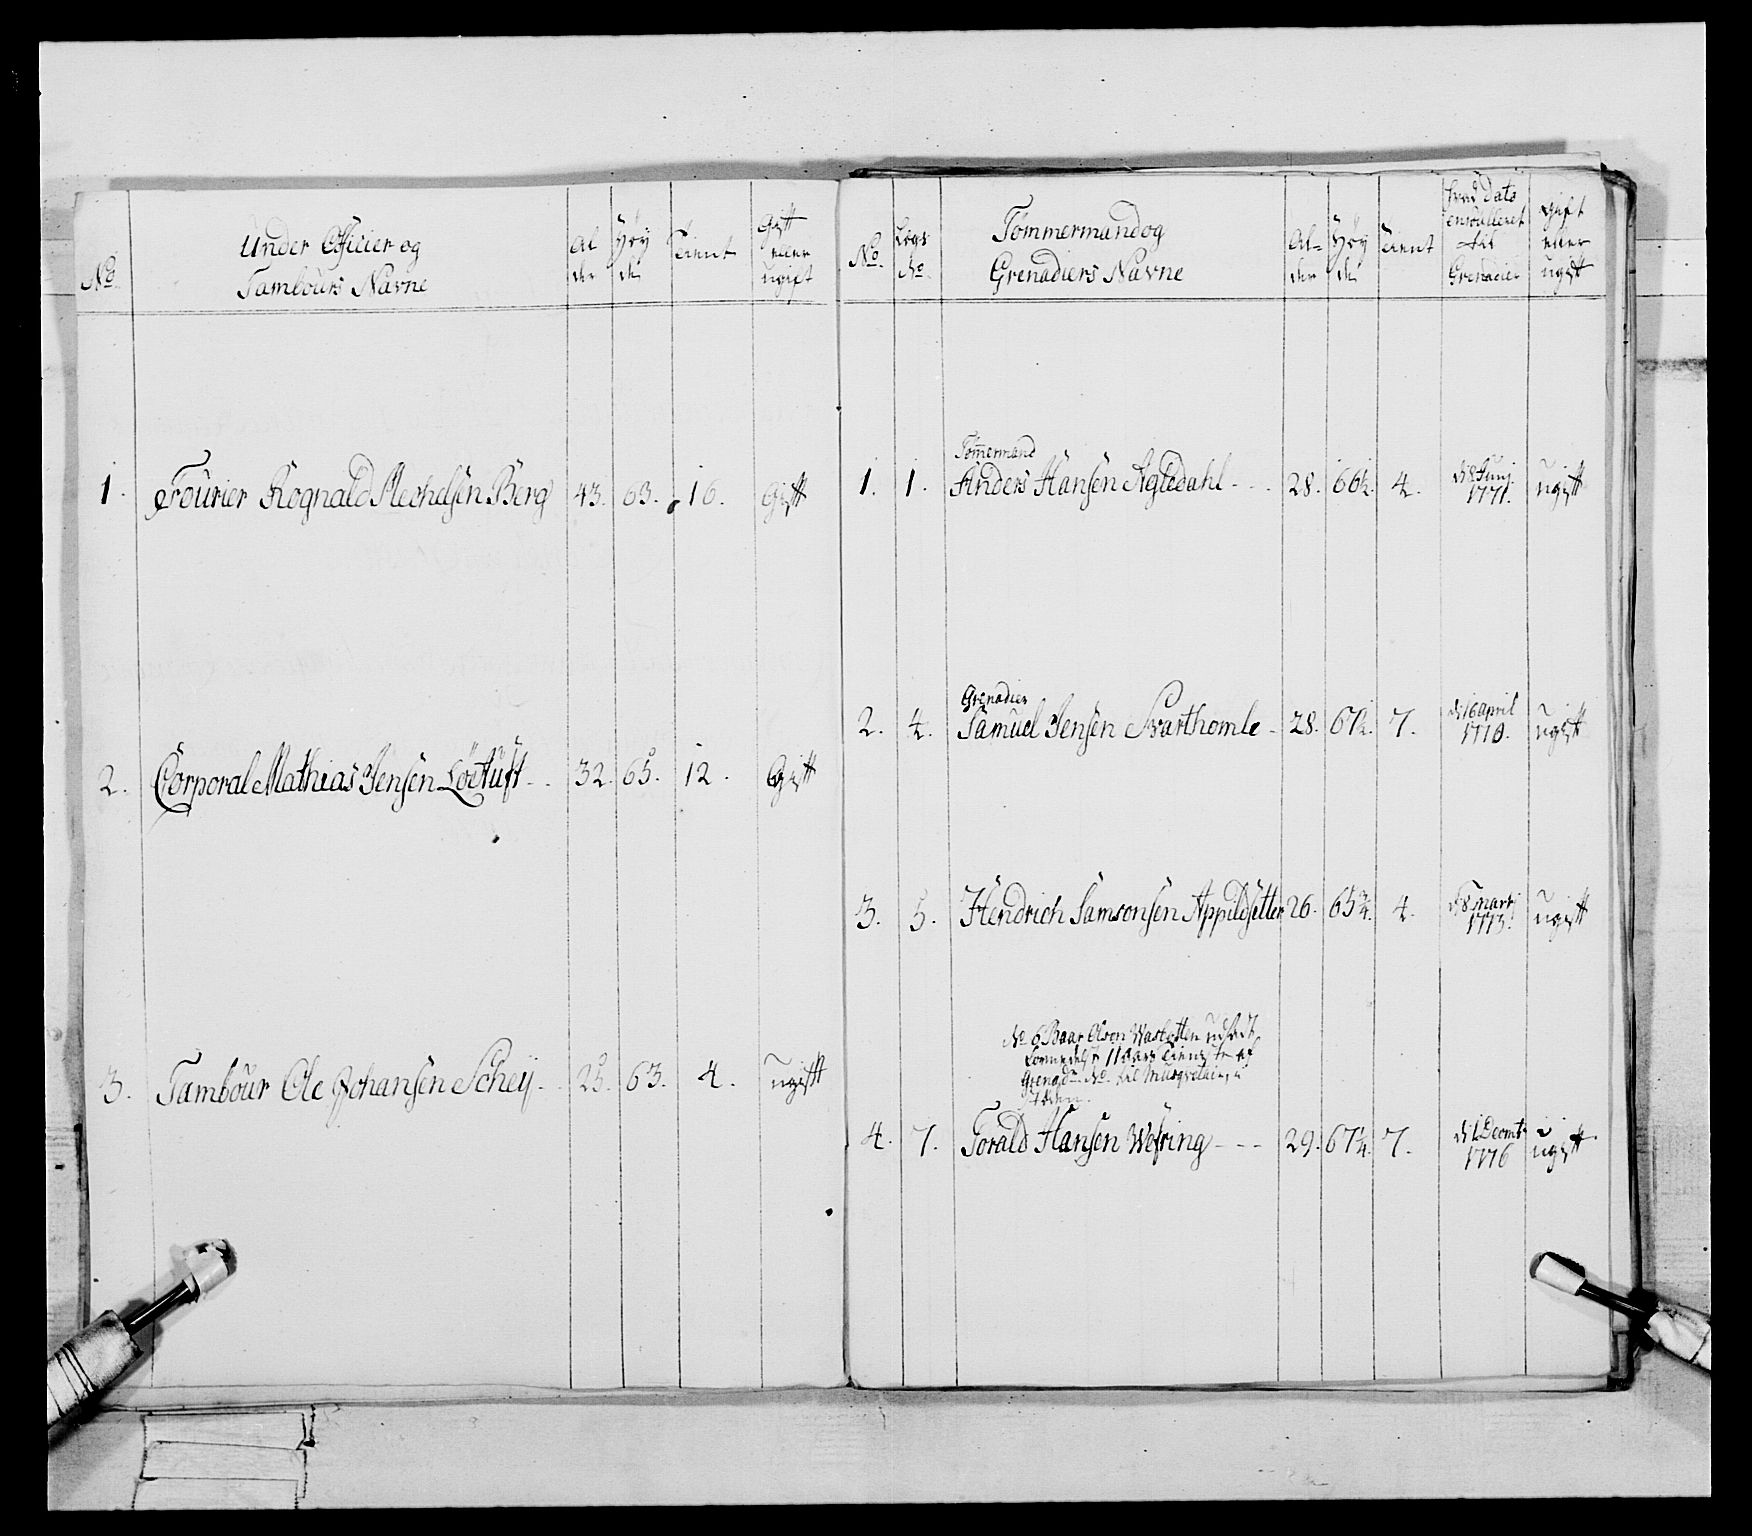 No.
Under Officier og
Tambours Navne
Al
der
Høy
de
Tient
Gift
eller
ugift
1. Fourier Rognald Mechelsen Berg 43. 63. 16. Gift
2. Corporal Mathias Jensen Löetuft - - 32. 65. 12. Gift
3. Tambour Ole Johansen Scheij - 25. 63. 4. ugift
No.
Logs
No.
Tømmermand og
Grenadiers Navne
Al-
der
Høy
de
Tient
hvad Dato
enroulleret
til
Grenadier
gift
eller
ugift
Tömmermand
1. 1. Anders Hansen Agledahl - - - 28. 66½. 4. d: 8 Junj 1771. ugift
Grenadier
2. 4. Samuel Jensen Svarthomle - 28. 67½. 7. d: 16 april 1770. ugift
3. 5. Hendrich Samsonsen Appildsetter 26. 65¾. 4. d: 8 martj 1773. ugift
No 6 Baar Olsen udsadt
11 aars Tieneste af
Grenad: No. til
4. 7. Torald Hansen Wefring - - - 29. 67¼. 7. d: 1 Decmb 1776 ugift